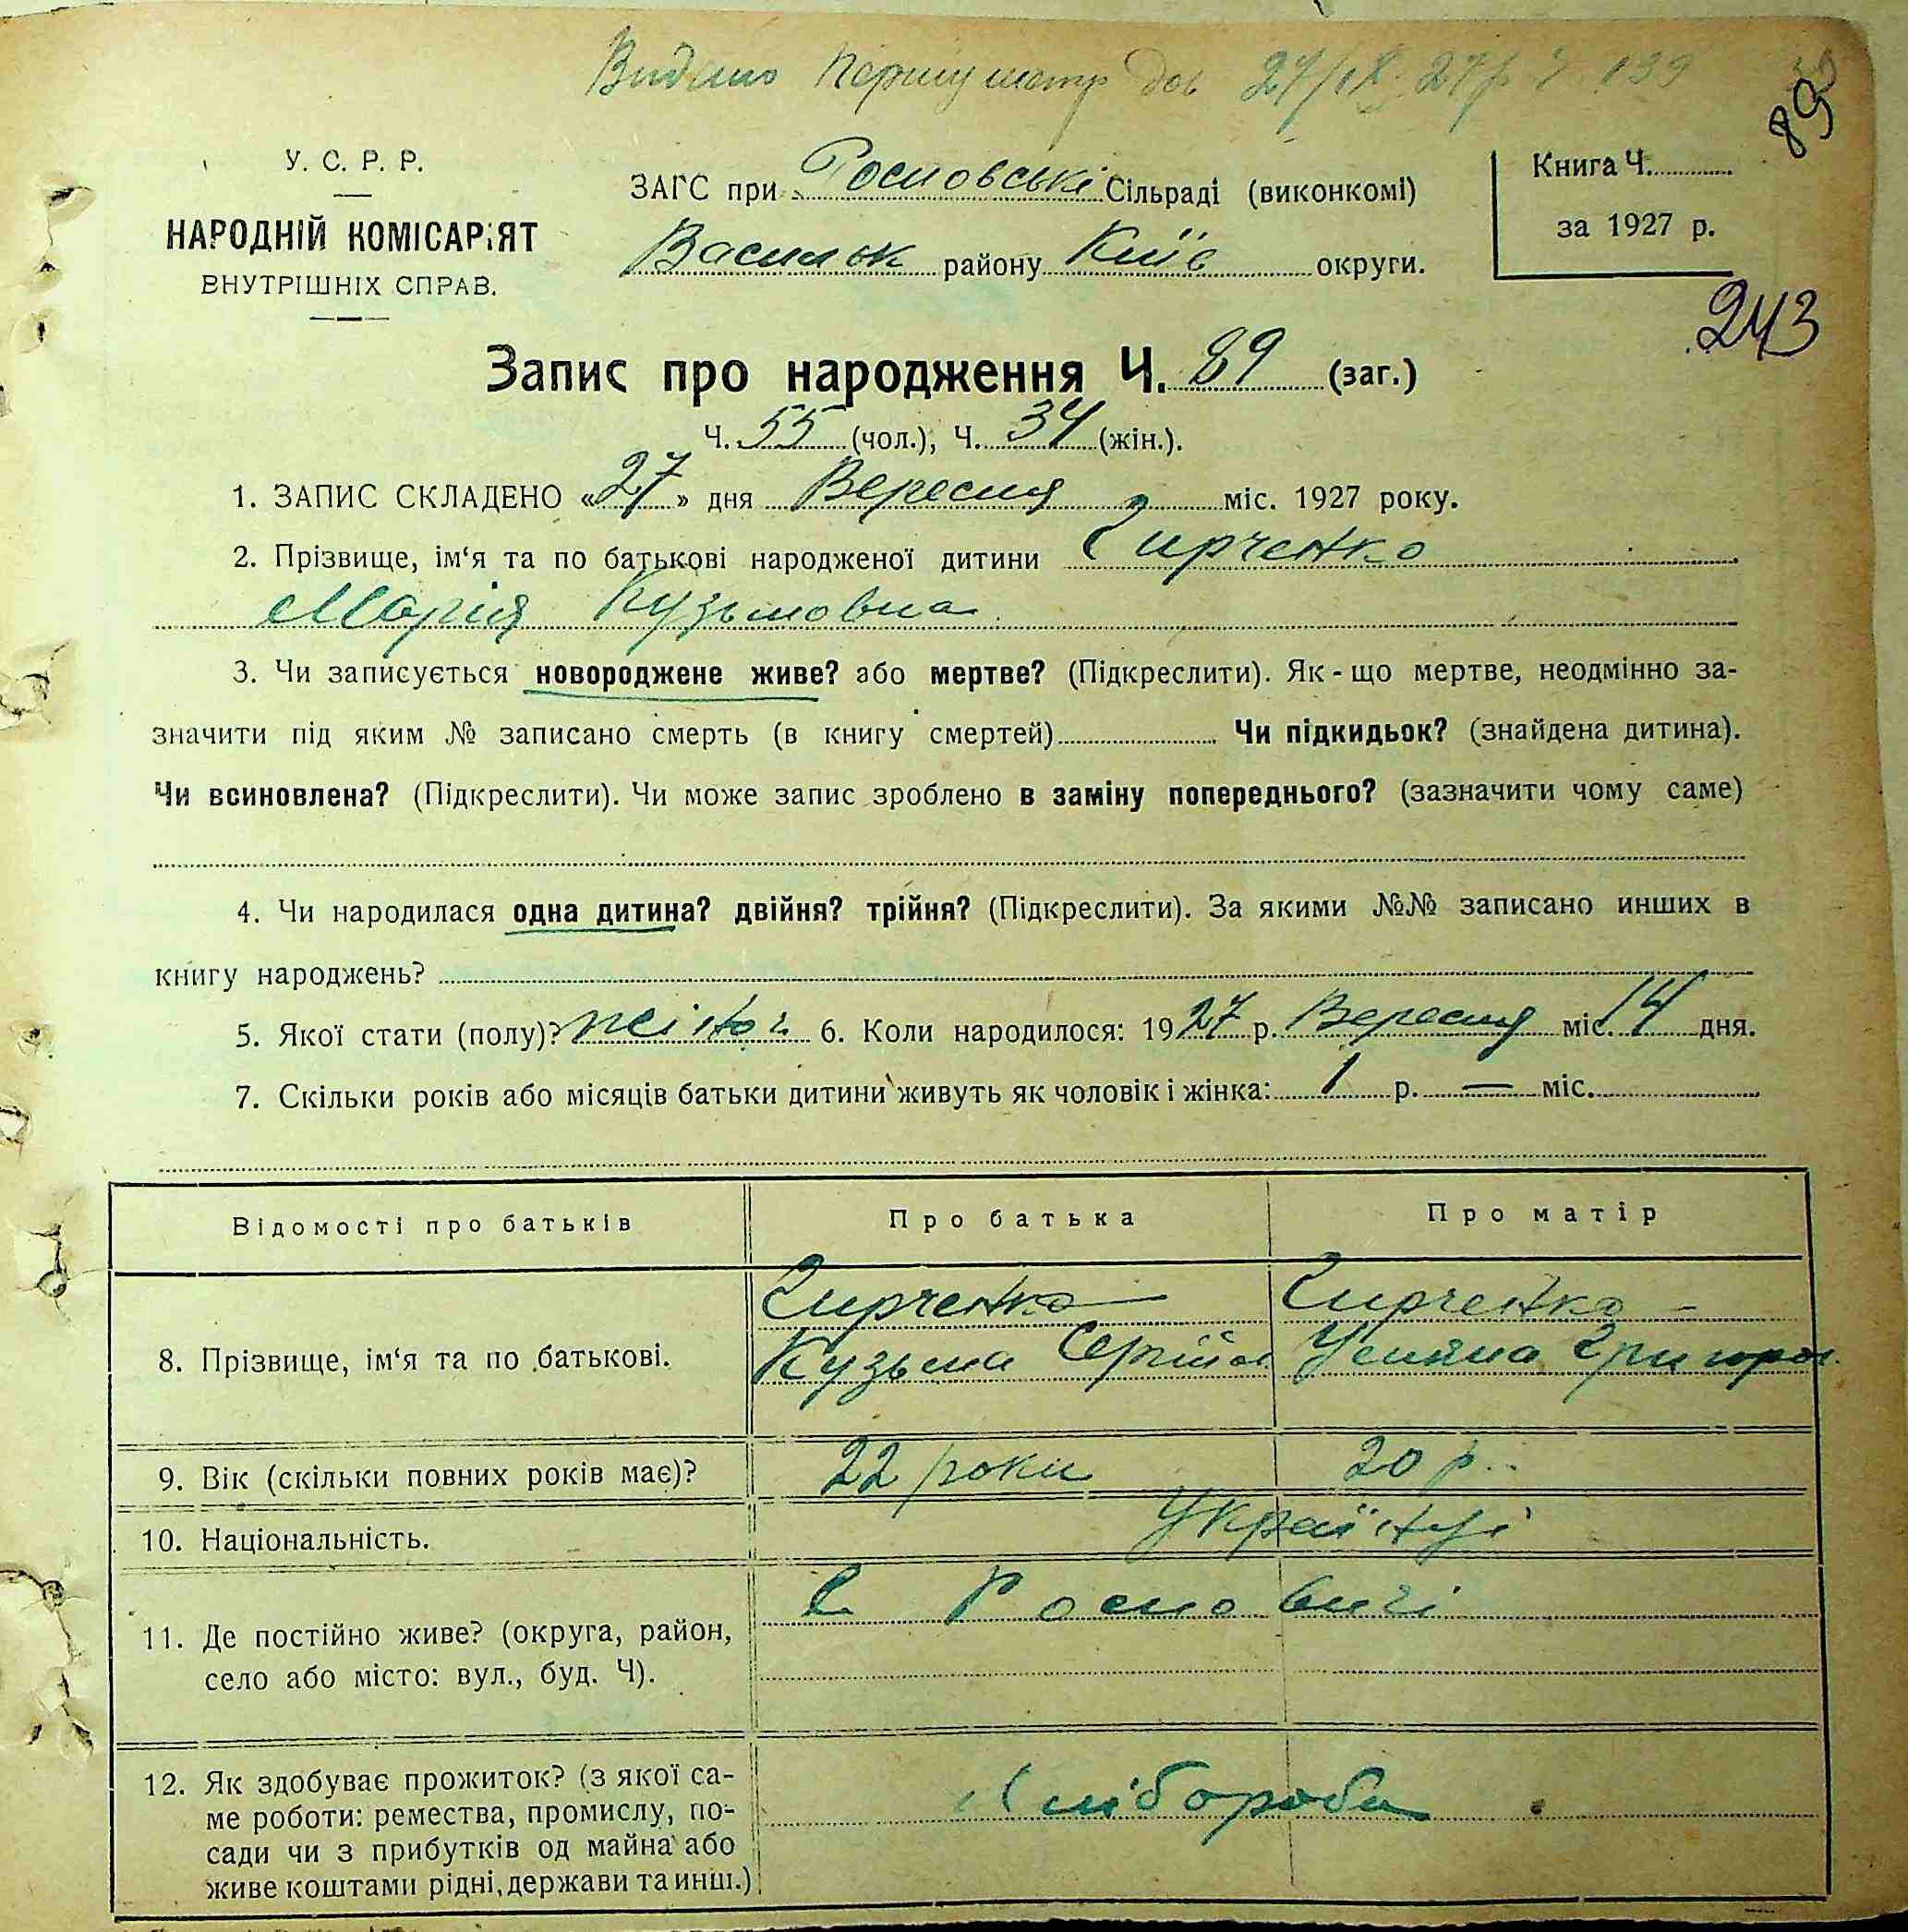 Видано
89
У. С. Р. Р.
НАРОДНІЙ КОМІСАРІЯТ
ВНУТРІШНІХ СПРАВ.
ЗАГС при Росновські Сільраді (виконкомі)
Васильк району Київ округи.
Книга Ч.
за 1927 р.
243
Запис про народження Ч. 89 (заг.)
Ч. 55 (чол.), Ч. 34 (жін.).
1. ЗАПИС СКЛАДЕНО «27» дня Вересня міс. 1927 року.
2. Прізвище, ім‘я та по батькові народженої дитини Гирченко
Марія Кузьмовна
3. Чи записується новороджене живе? або мертве? (Підкреслити). Як-що мертве, неодмінно за-
значити під яким № записано смерть (в книгу смертей) Чи підкидьок? (знайдена дитина).
Чи всиновлена? (Підкреслити). Чи може запис зроблено в заміну попереднього? (зазначити чому саме)
4. Чи народилася одна дитина? двійня? трійня? (Підкреслити). За якими №№ записано инших в
книгу народжень?
5. Якої стати (полу)? жіноч 6. Коли народилося: 1927 р. Вересня міс. 14 дня.
7. Скільки років або місяців батьки дитини живуть як чоловік і жінка: 1 р. = міс.
Відомості про батьків Про батька Про матір
8. Прізвище, ім‘я та по батькові.
Гирченко Гирченко
Кузьма Сергійов Уляна Григоров.
9. Вік (скільки повних років має)? 22 роки 20 р.
10. Національність. Українці
11. Де постійно живе? (округа, район,
село або місто: вул., буд. Ч).
С Росновичі
12. Як здобуває прожиток? (з якої са-
ме роботи: ремества, промислу, по-
сади чи з прибутків од майна або
живе коштами рідні, держави та инш.)
Хлібороби